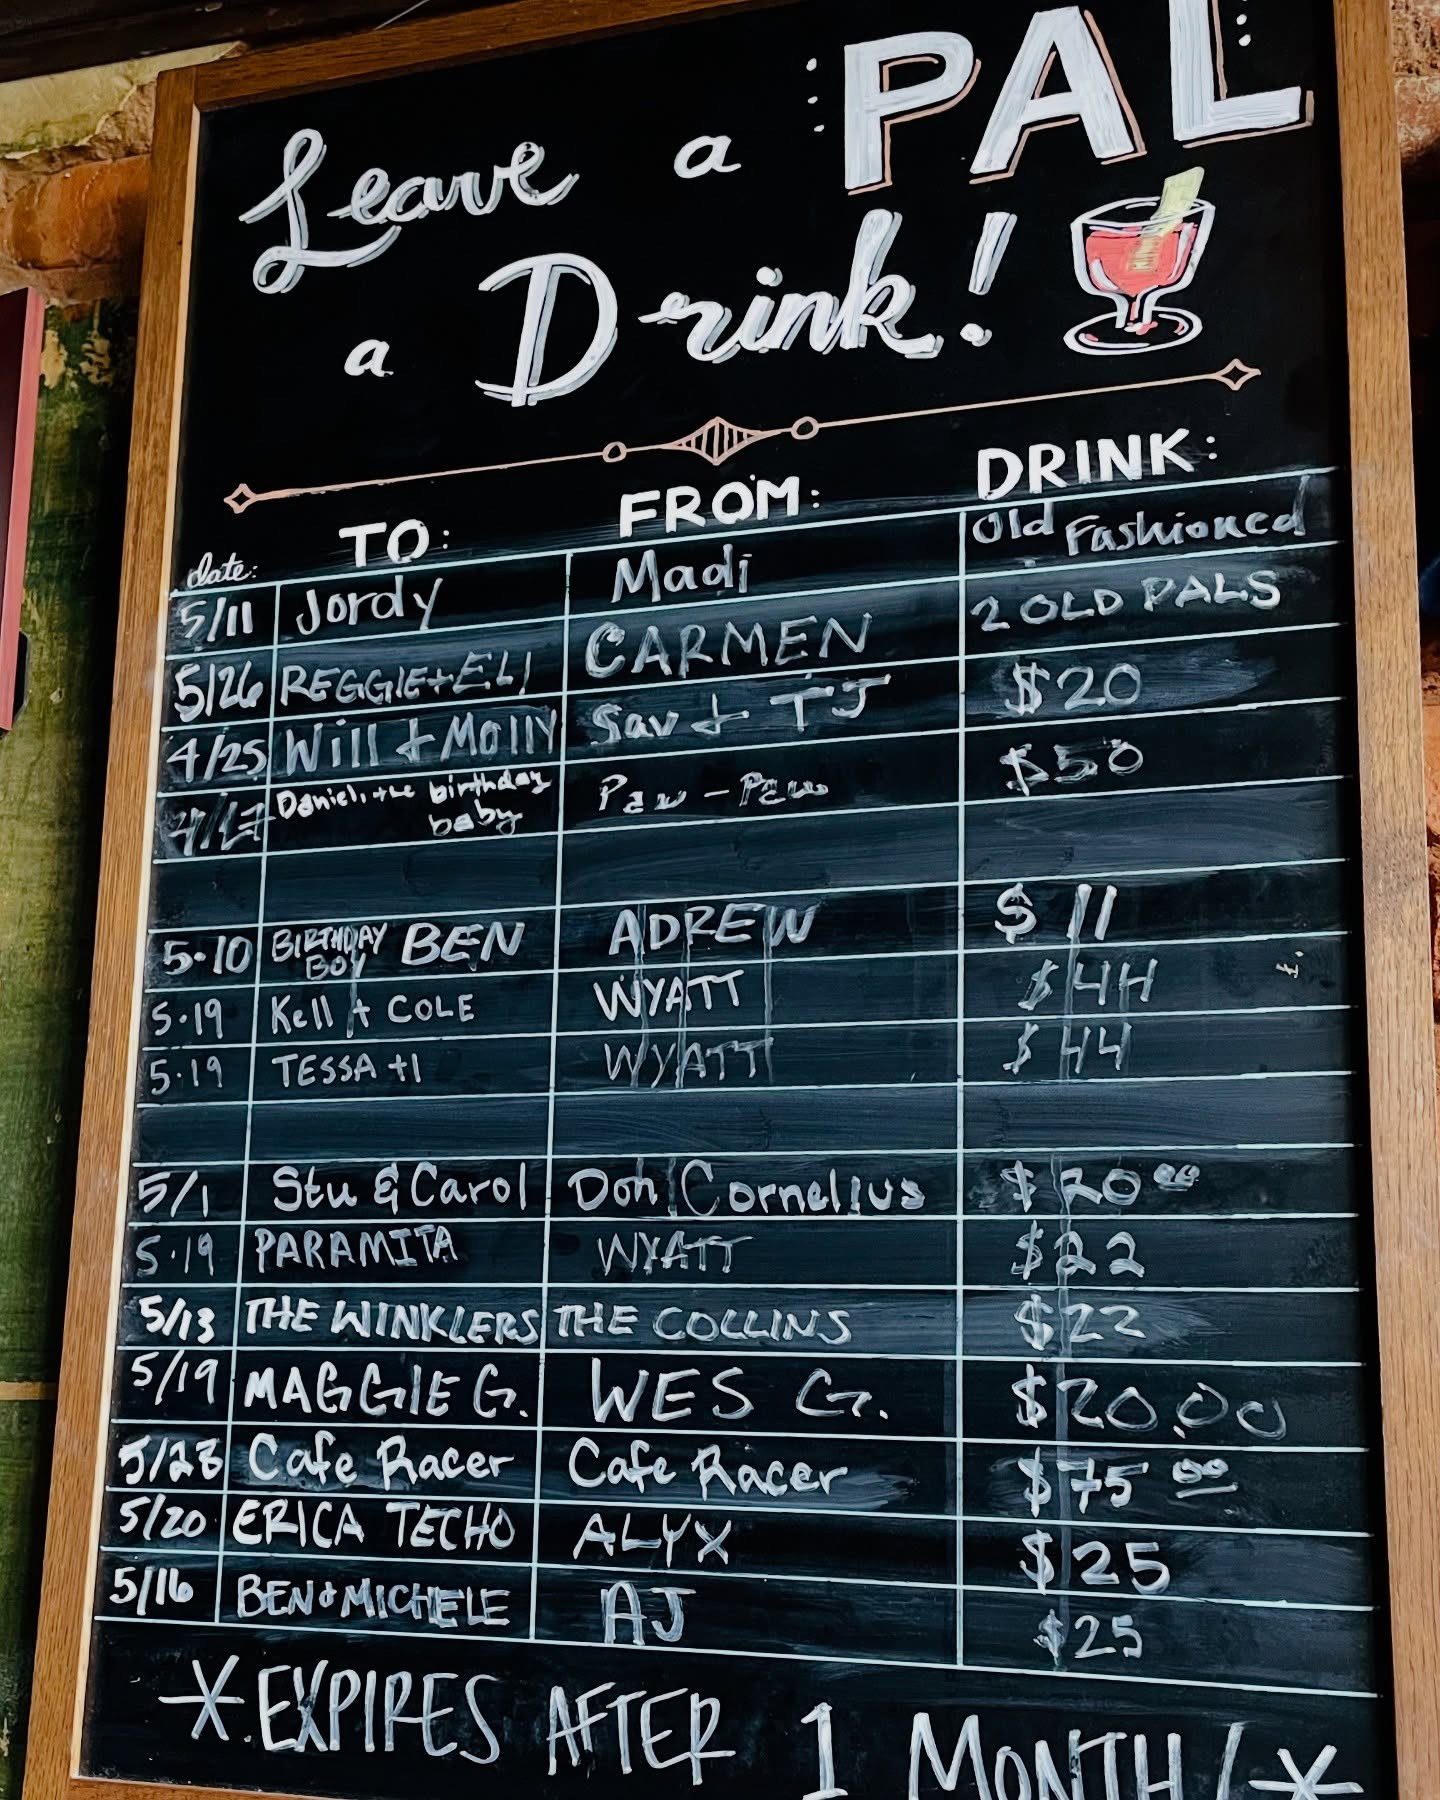 Leave a PAL
a Drink!
date: TO: FROM: DRINK:
5/11 Jordy Madi Old Fashioned
5/26 REGGIE + ELI CARMEN 2 OLD PALS
4/25 Will + Molly Sav + TJ $20
4/27 Daniel, the birthday baby Paw-Paw $50
5·10 BIRTHDAY BOY BEN ADREW $11
5·19 Kell + COLE WYATT $44
5·19 TESSA +1 WYATT $44
5/1 Stu & Carol Doh Cornelius $20.00
5·19 PARAMITA WYATT $22
5/13 THE WINKLERS THE COLLINS $22
5/19 MAGGIE G. WES G. $20.00
Cafe Racer Cafe Racer $75.00
5/20 ERICA TECHO ALYX $25
5/16 BEN & MICHELE AJ $25
*EXPIRES AFTER 1 MONTH!*